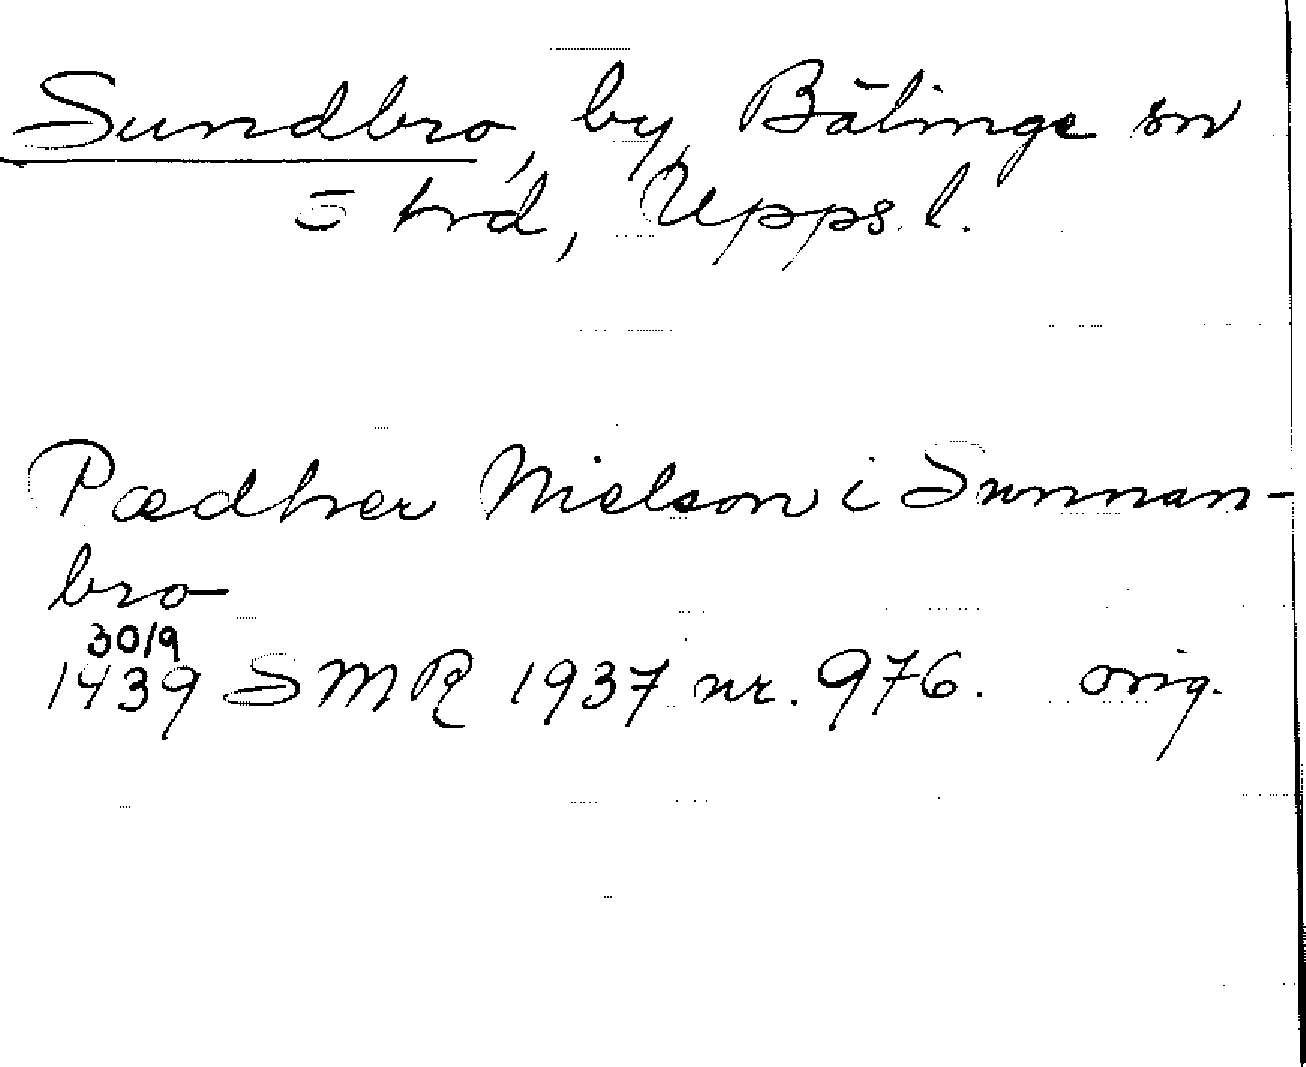 Sundbro, by, Bälinge sn
5 hrd, Upps. l.
Pædher Nielson i Sunnan-
bro
30/9
1439 SMR 1937 nr. 976. orig.